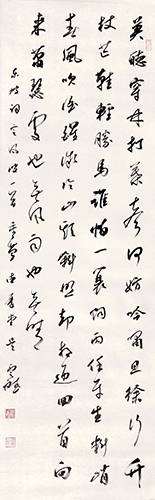 莫聽穿林打葉聲何妨吟嘯且徐行竹
杖芒鞋輕勝馬誰怕一蓑烟雨任平生料峭
春風吹酒醒微冷山頭斜照却相迎回首向
來蕭瑟處也無風雨也無晴
東坡詞定風波一首